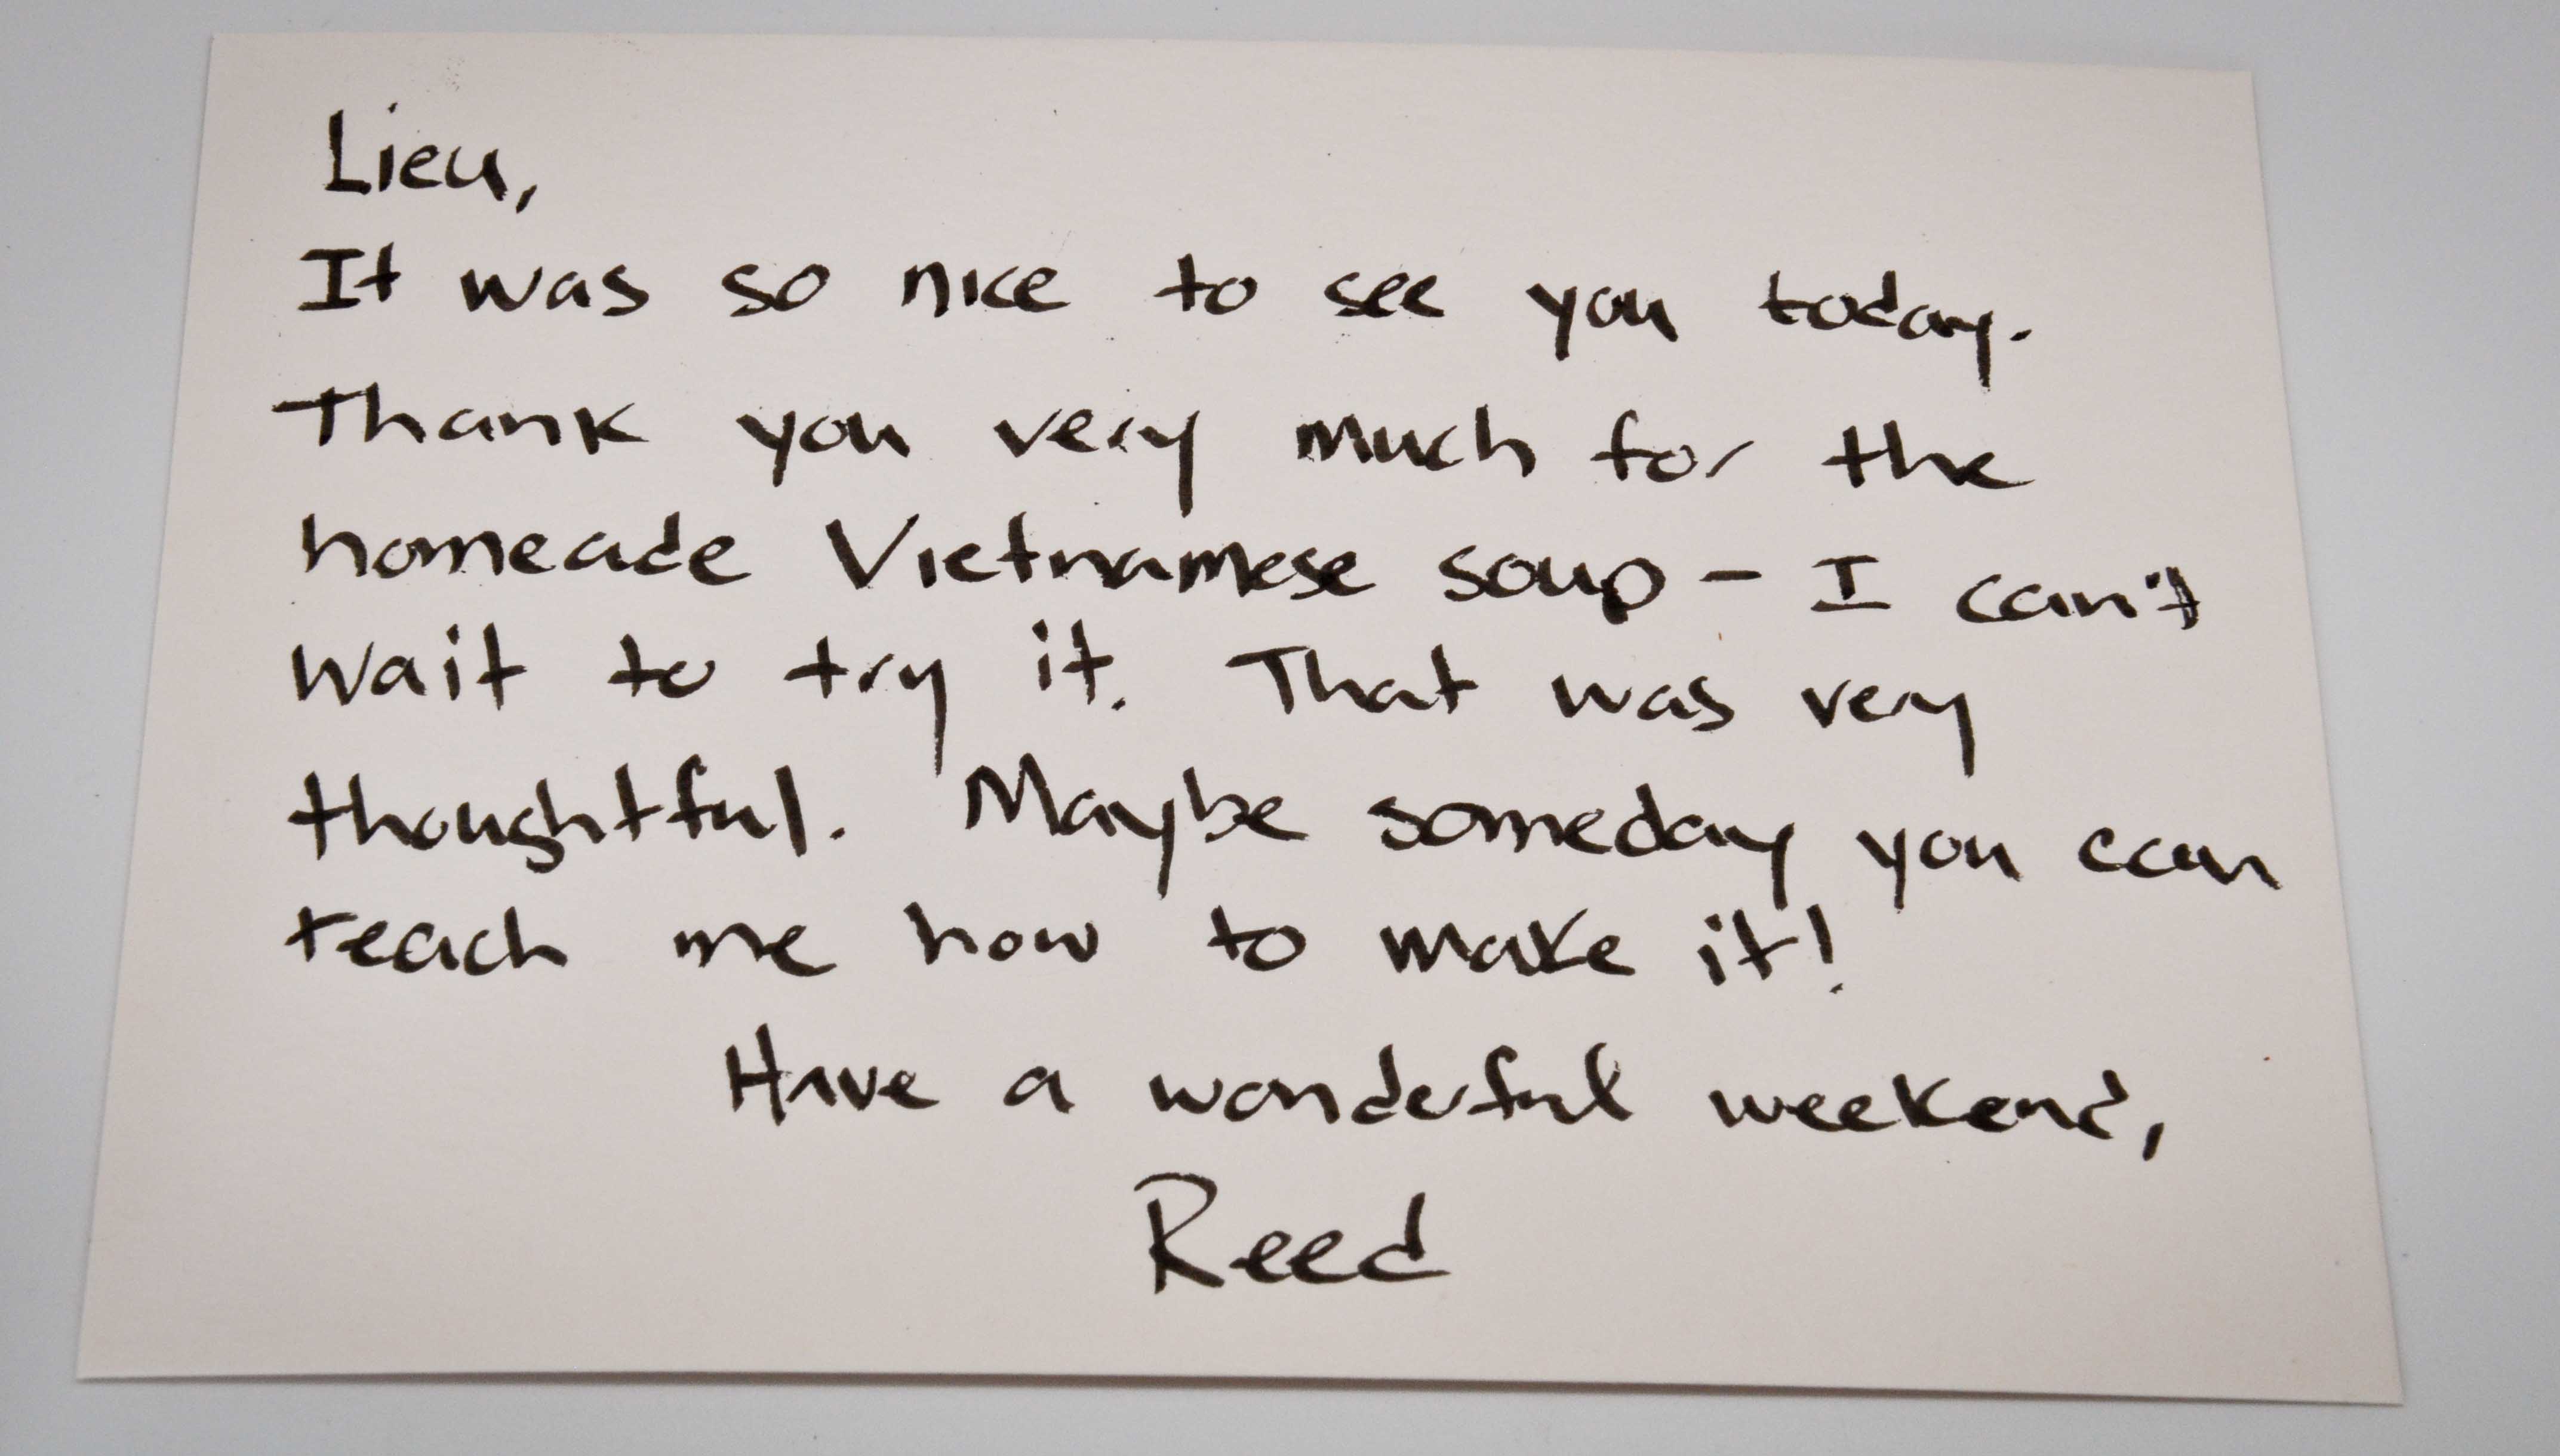 Lieu,
It was so nice to see you today.
Thank you very much for the
homeade Vietnamese soup - I can't
wait to try it. That was very
thoughtful. Maybe someday you can
teach me how to make it!
Have a wonderful weekend,
Reed